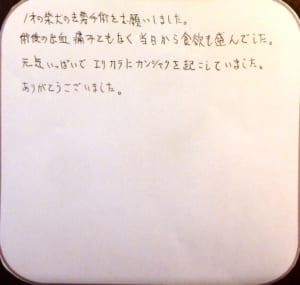 1才の柴犬の去勢手術をお願いしました。
術後の出血 痛みともなく 当日から食欲も盛んでした。
元気いっぱいで エリカラにカンシャクを起こしていました。
ありがとうございました。